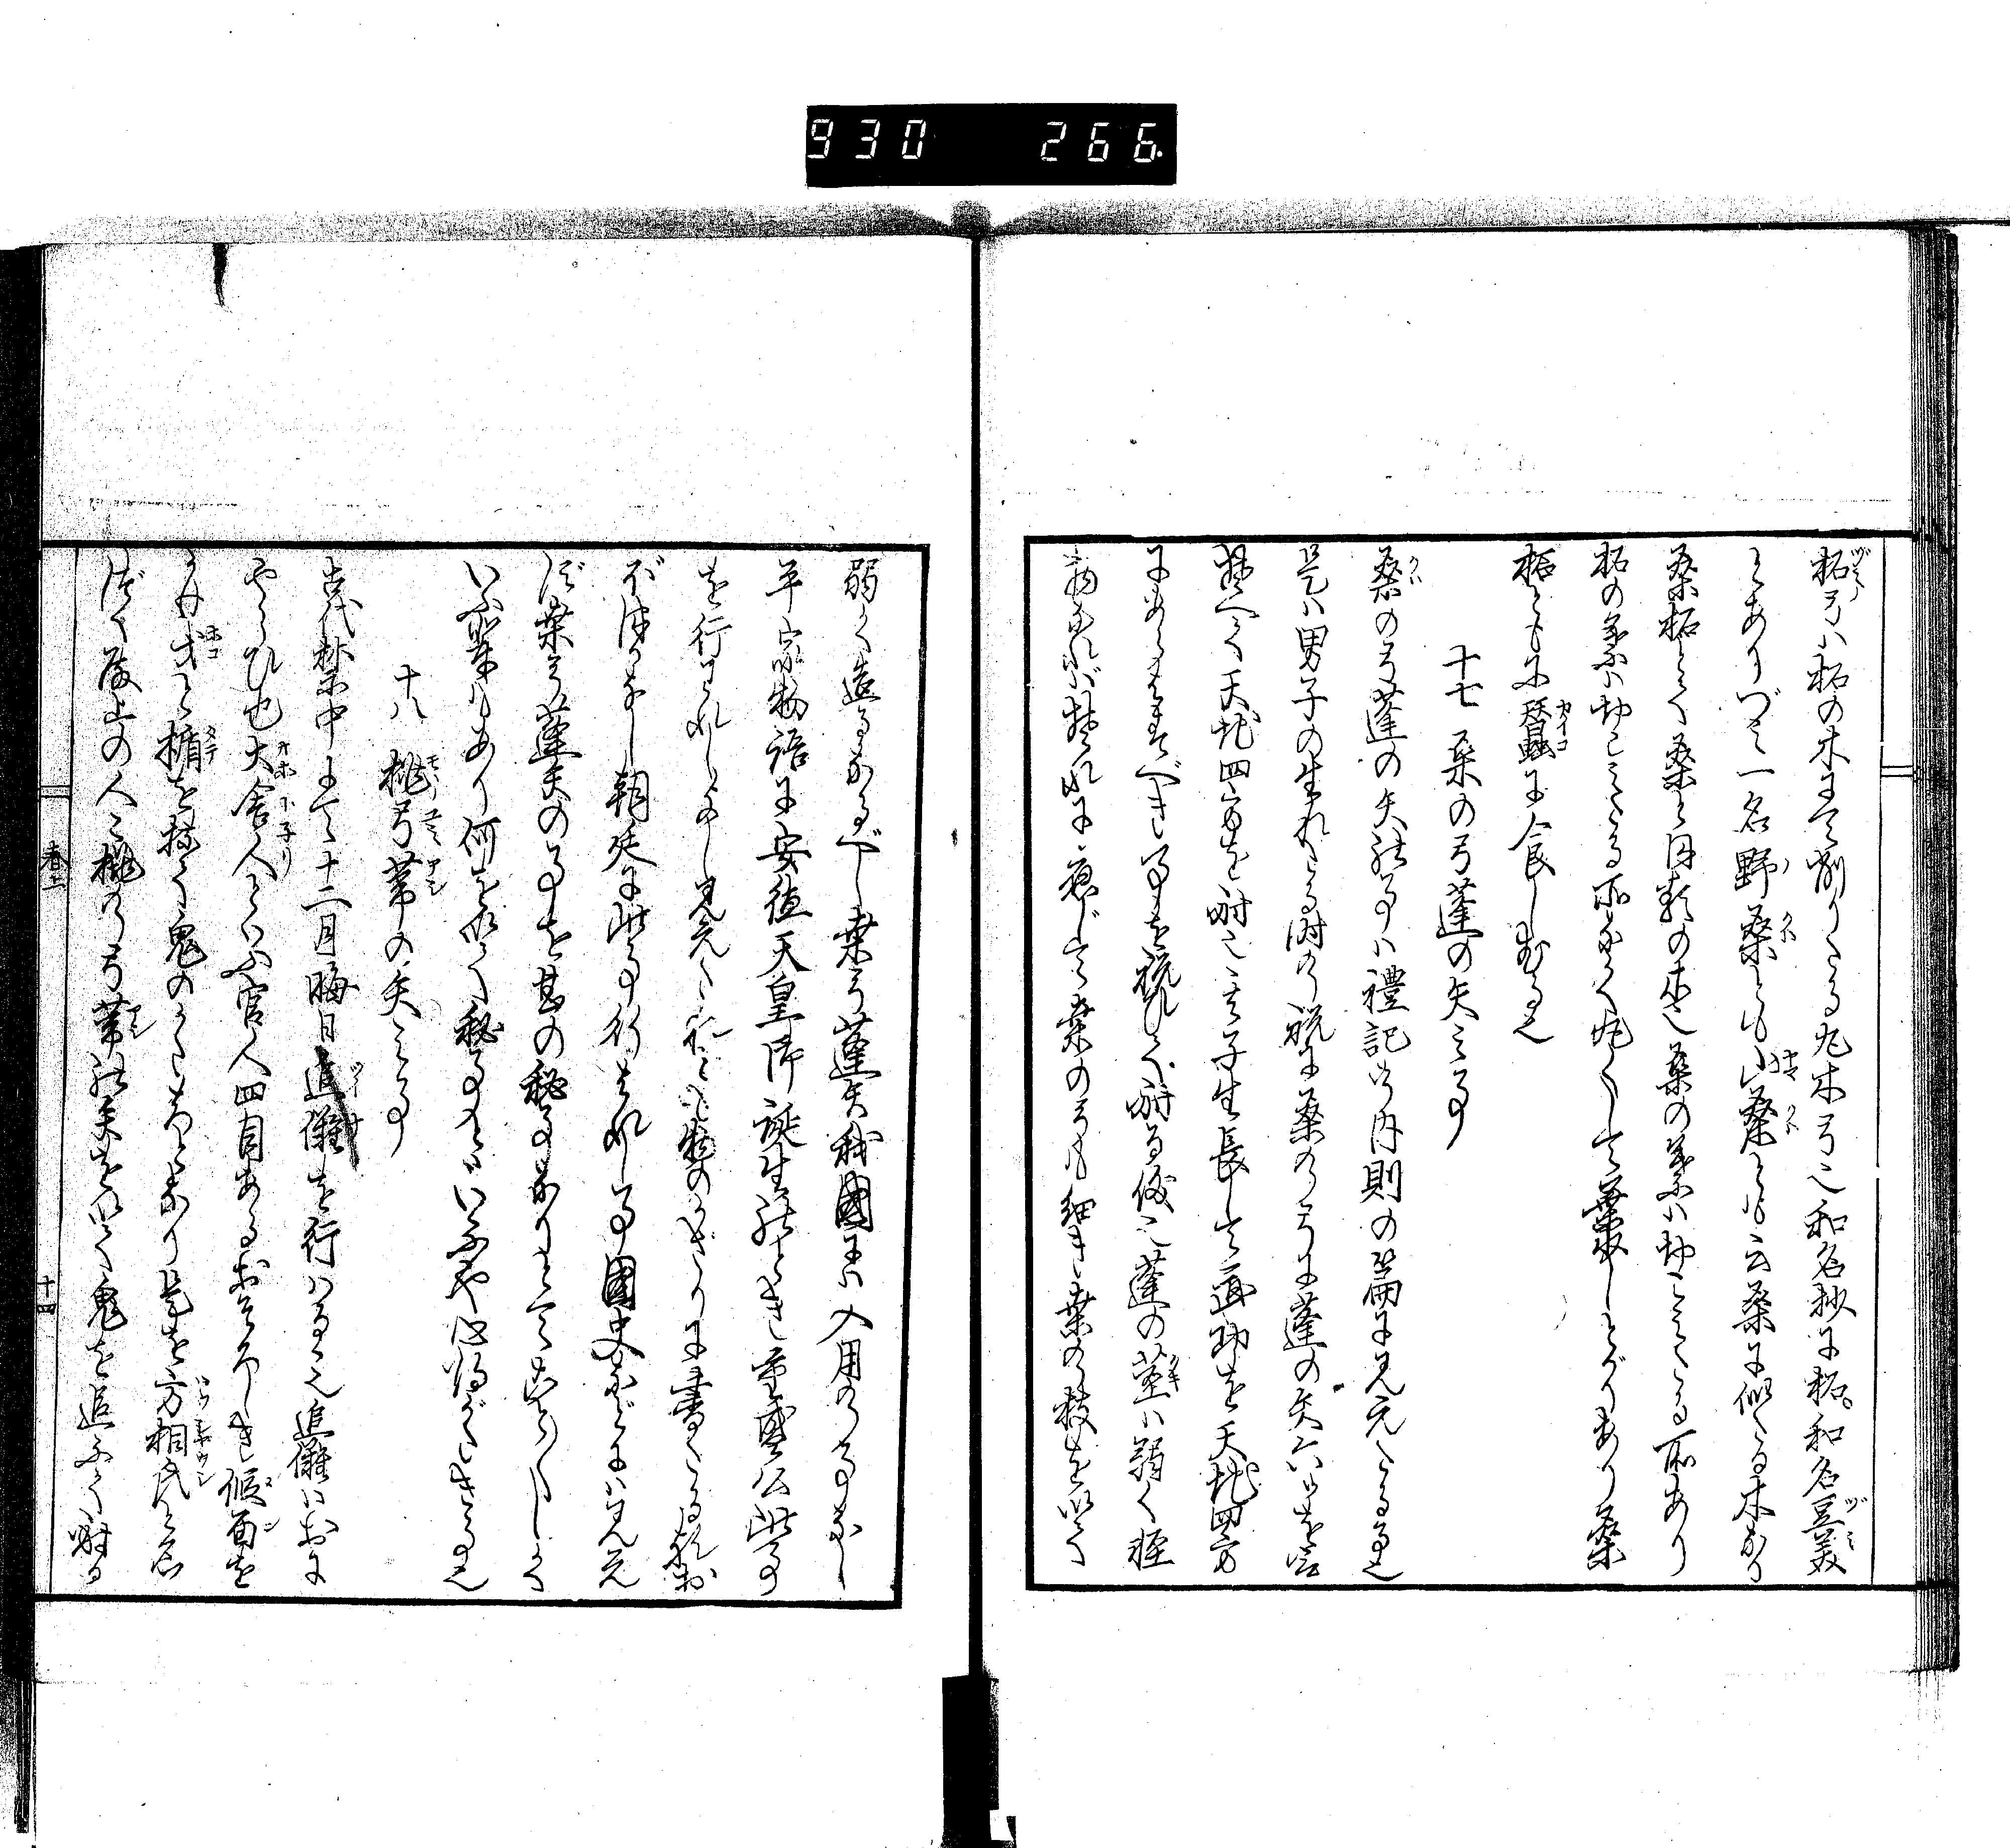 930 266
柘弓ハ柘の木にて削りたる丸木弓也和名抄に柘和名豆美
とありづミ一名野桑とも山桑とも云桑に似たる木なり
桑柘とて桑と同類の木也桑の葉ハ切こミたる所あり
柘の葉ハ切こミたる所なく丸くして葉末しとがりあり桑
柘ともに蠶に食しむる也
十七 桑の弓蓬の矢之事
桑の弓蓬の矢の事ハ禮記の内則の篇に見元たる事也
是ハ男子の生れたる時の祝に桑の弓に蓬の矢六ツを
天地四方を射る其子生長して武功を天地四方
にあらはすべき事を祝ひて射る儀也蓬の莖ハ弱く軽
き物なれば夫に應じて桑の弓も細き桑の枝を以て
弱く造るなるべし桑弓蓬矢我國にハ入用の事なし
平家物語に安徳天皇御誕生のとき重盛公此事
を行ハれしよし見元たれども物のかざりに書たる
ぼつかなし朝廷に此事行はれし事國史などにハ見元
ず桑弓蓬矢の事を甚の秘事なりとてことごとしく
いふ輩ハあり何を以て秘事とハいふや心得がたき事也
十八 桃弓葦の矢之事
古代禁中にて十二月晦日追儺を行ハるゝ也追儺ハおに
やらひ也大舎人といふ官人四目あるおそろしき假面を
かけ戈と楯を持て鬼のかたちになり是を方相氏と名
づく殿上の人々桃の弓葦の矢を以て鬼を追ふて射る
春二
十四